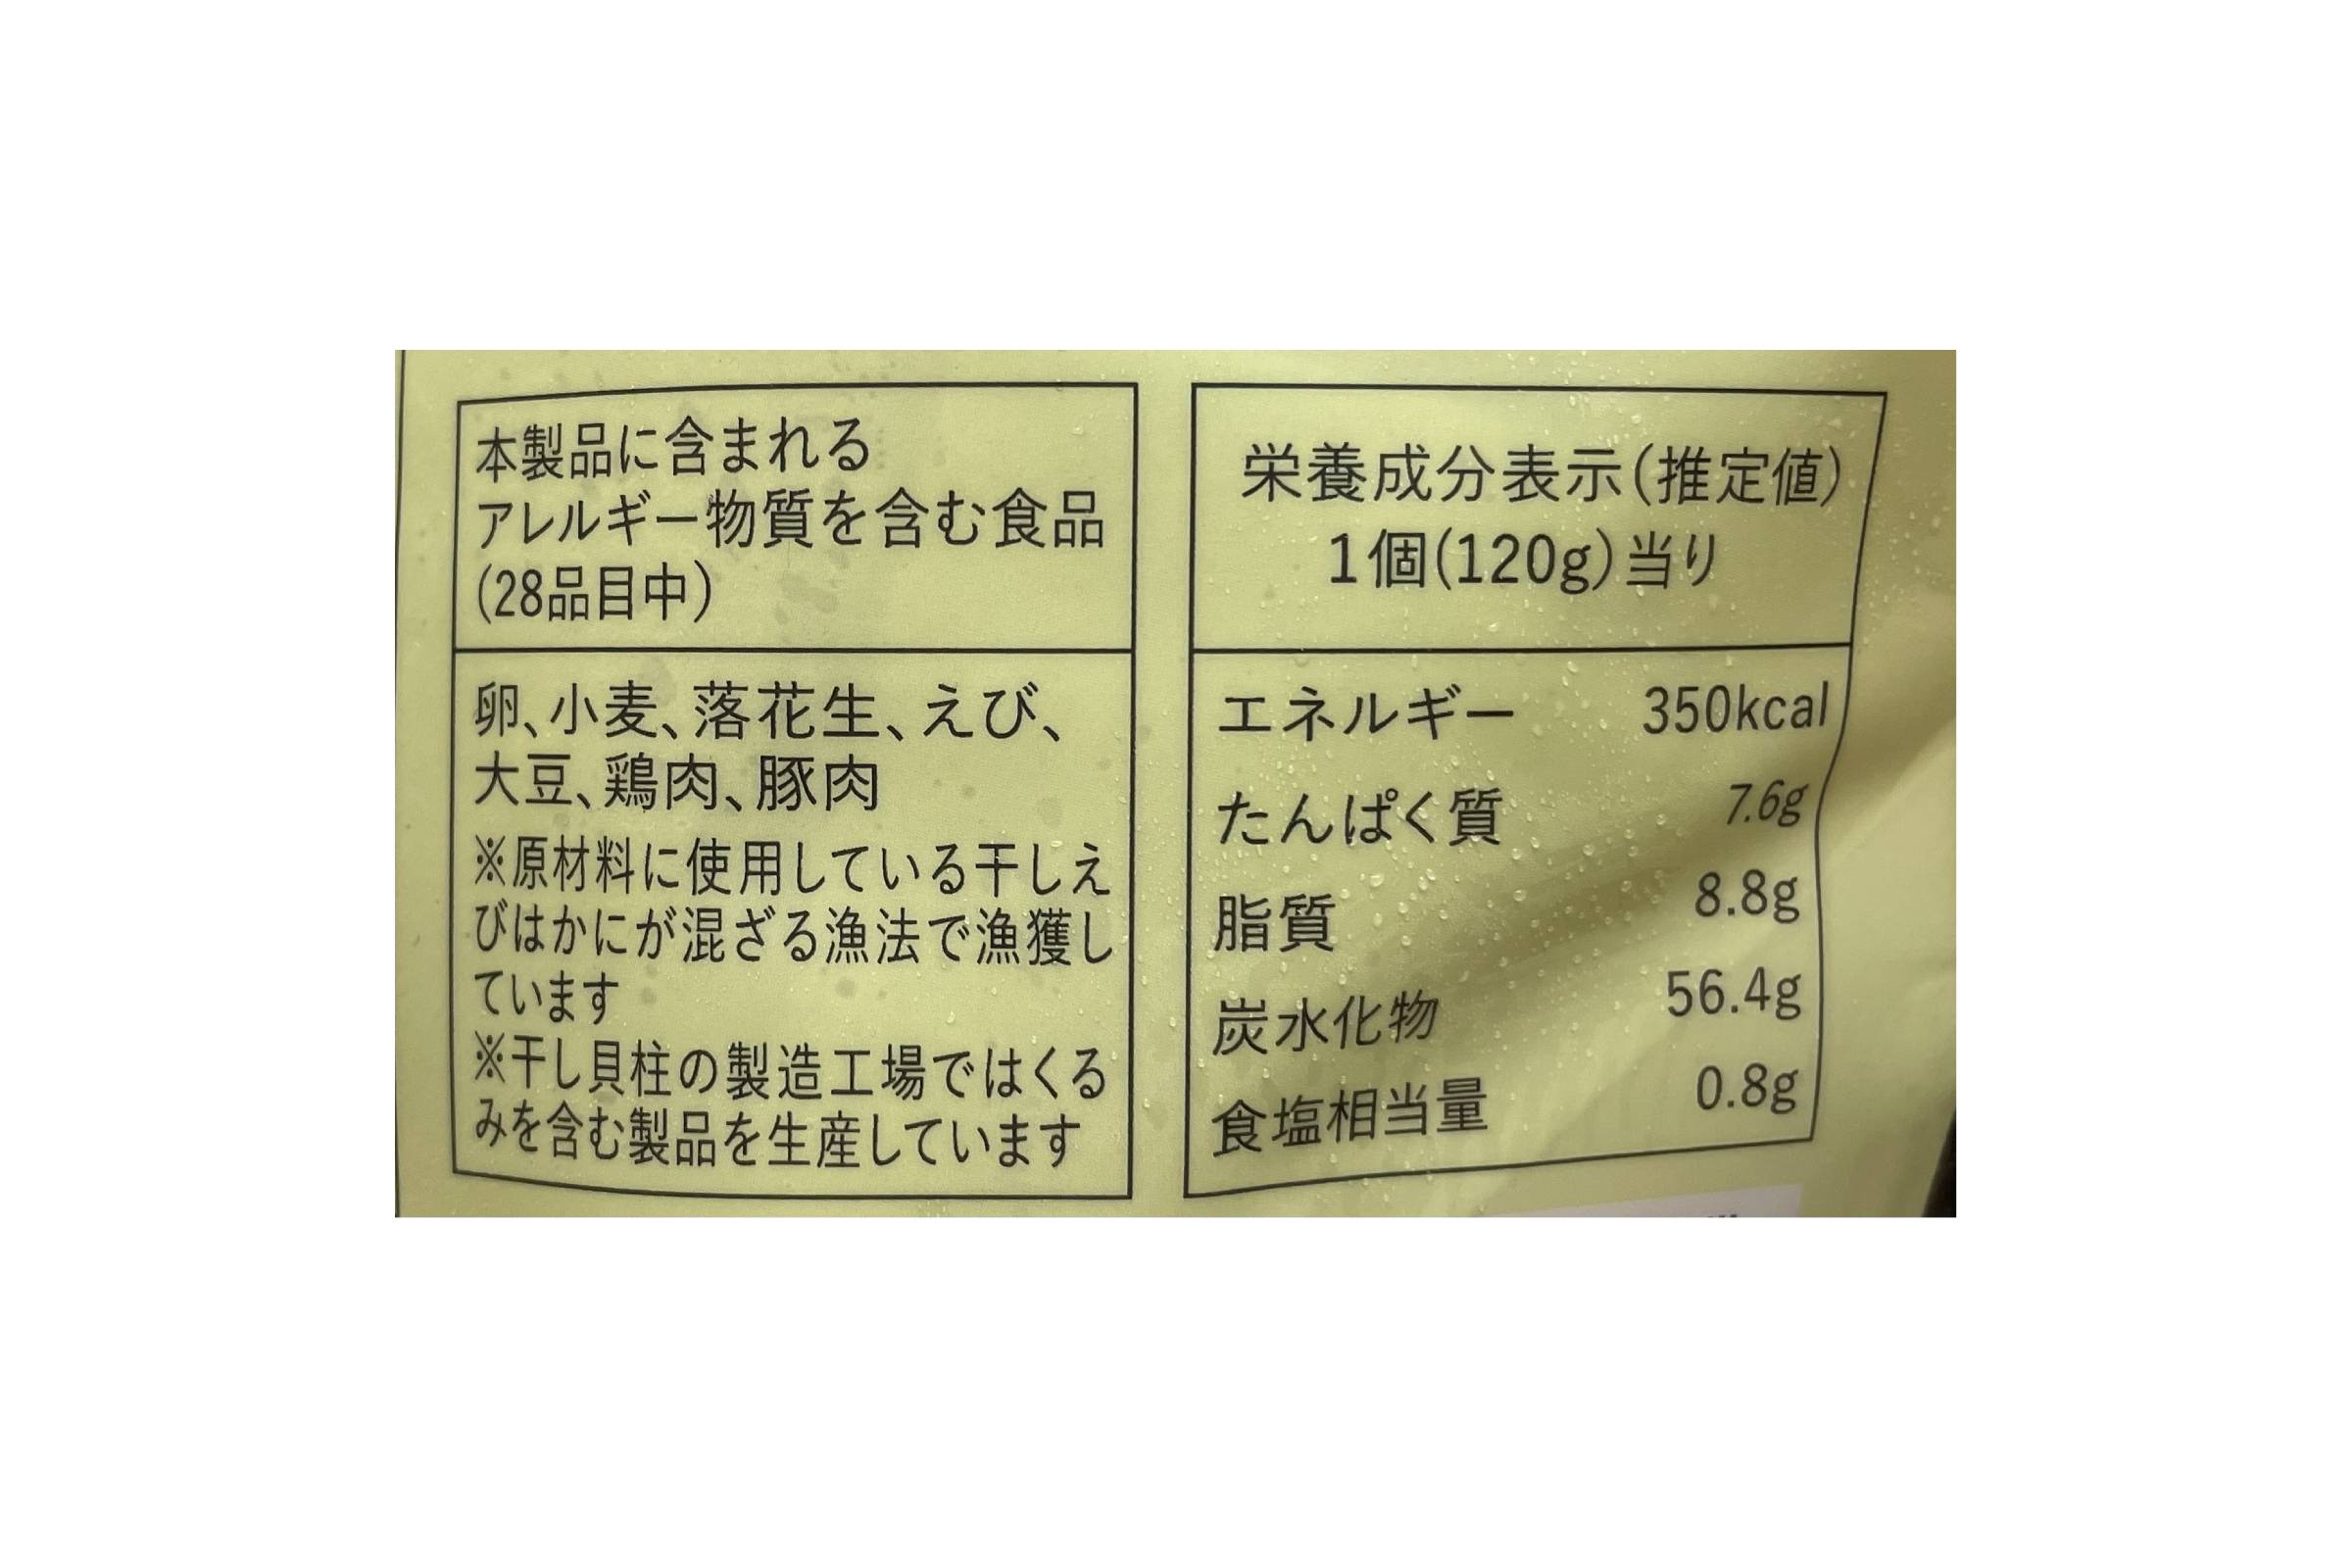 本製品に含まれる
アレルギー物質を含む食品
(28品目中)
卵、小麦、落花生、えび、
大豆、鶏肉、豚肉
※原材料に使用している干しえ
びはかにが混ざる漁法で漁獲し
ています
※干し貝柱の製造工場ではくる
みを含む製品を生産しています
栄養成分表示(推定値)
1個(120g)当り
エネルギー 350kcal
たんぱく質 7.6g
脂質 8.8g
炭水化物 56.4g
食塩相当量 0.8g